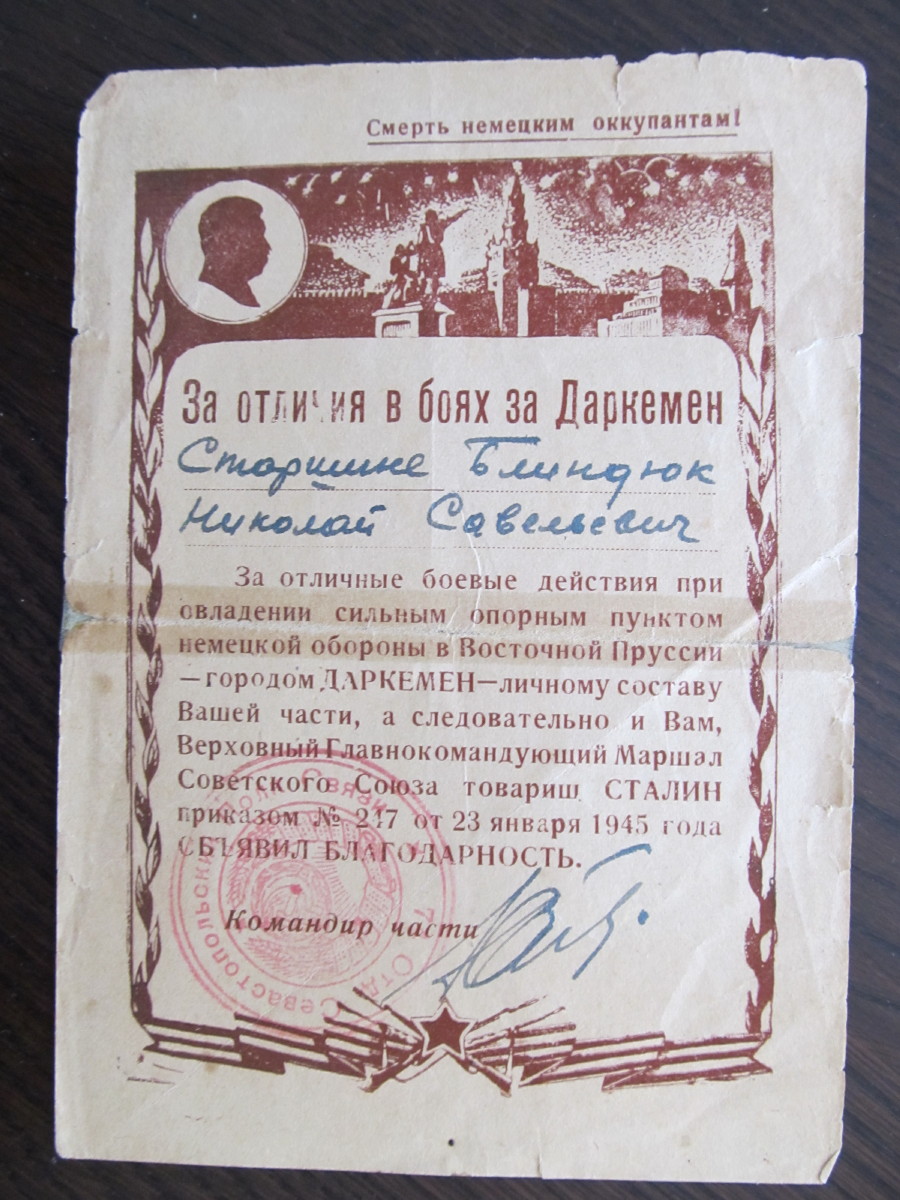 Смерть немецким оккупантам!
За отличия в боях за Даркемен
Старшине Блиндюк
Николай Савельевич
За отличные боевые действия при
овладении сильным опорным пунктом
немецкой обороны в Восточной Пруссии
—городом ДАРКЕМЕН—личному составу
Вашей части, а следовательно и Вам,
Верховный Главнокомандующий Маршал
Советского Союза товарищ СТАЛИН
приказом № 247 от 23 января 1945 года
ОБЪЯВИЛ БЛАГОДАРНОСТЬ.
Командир части
7 Отд. Севастопольский полк Связи